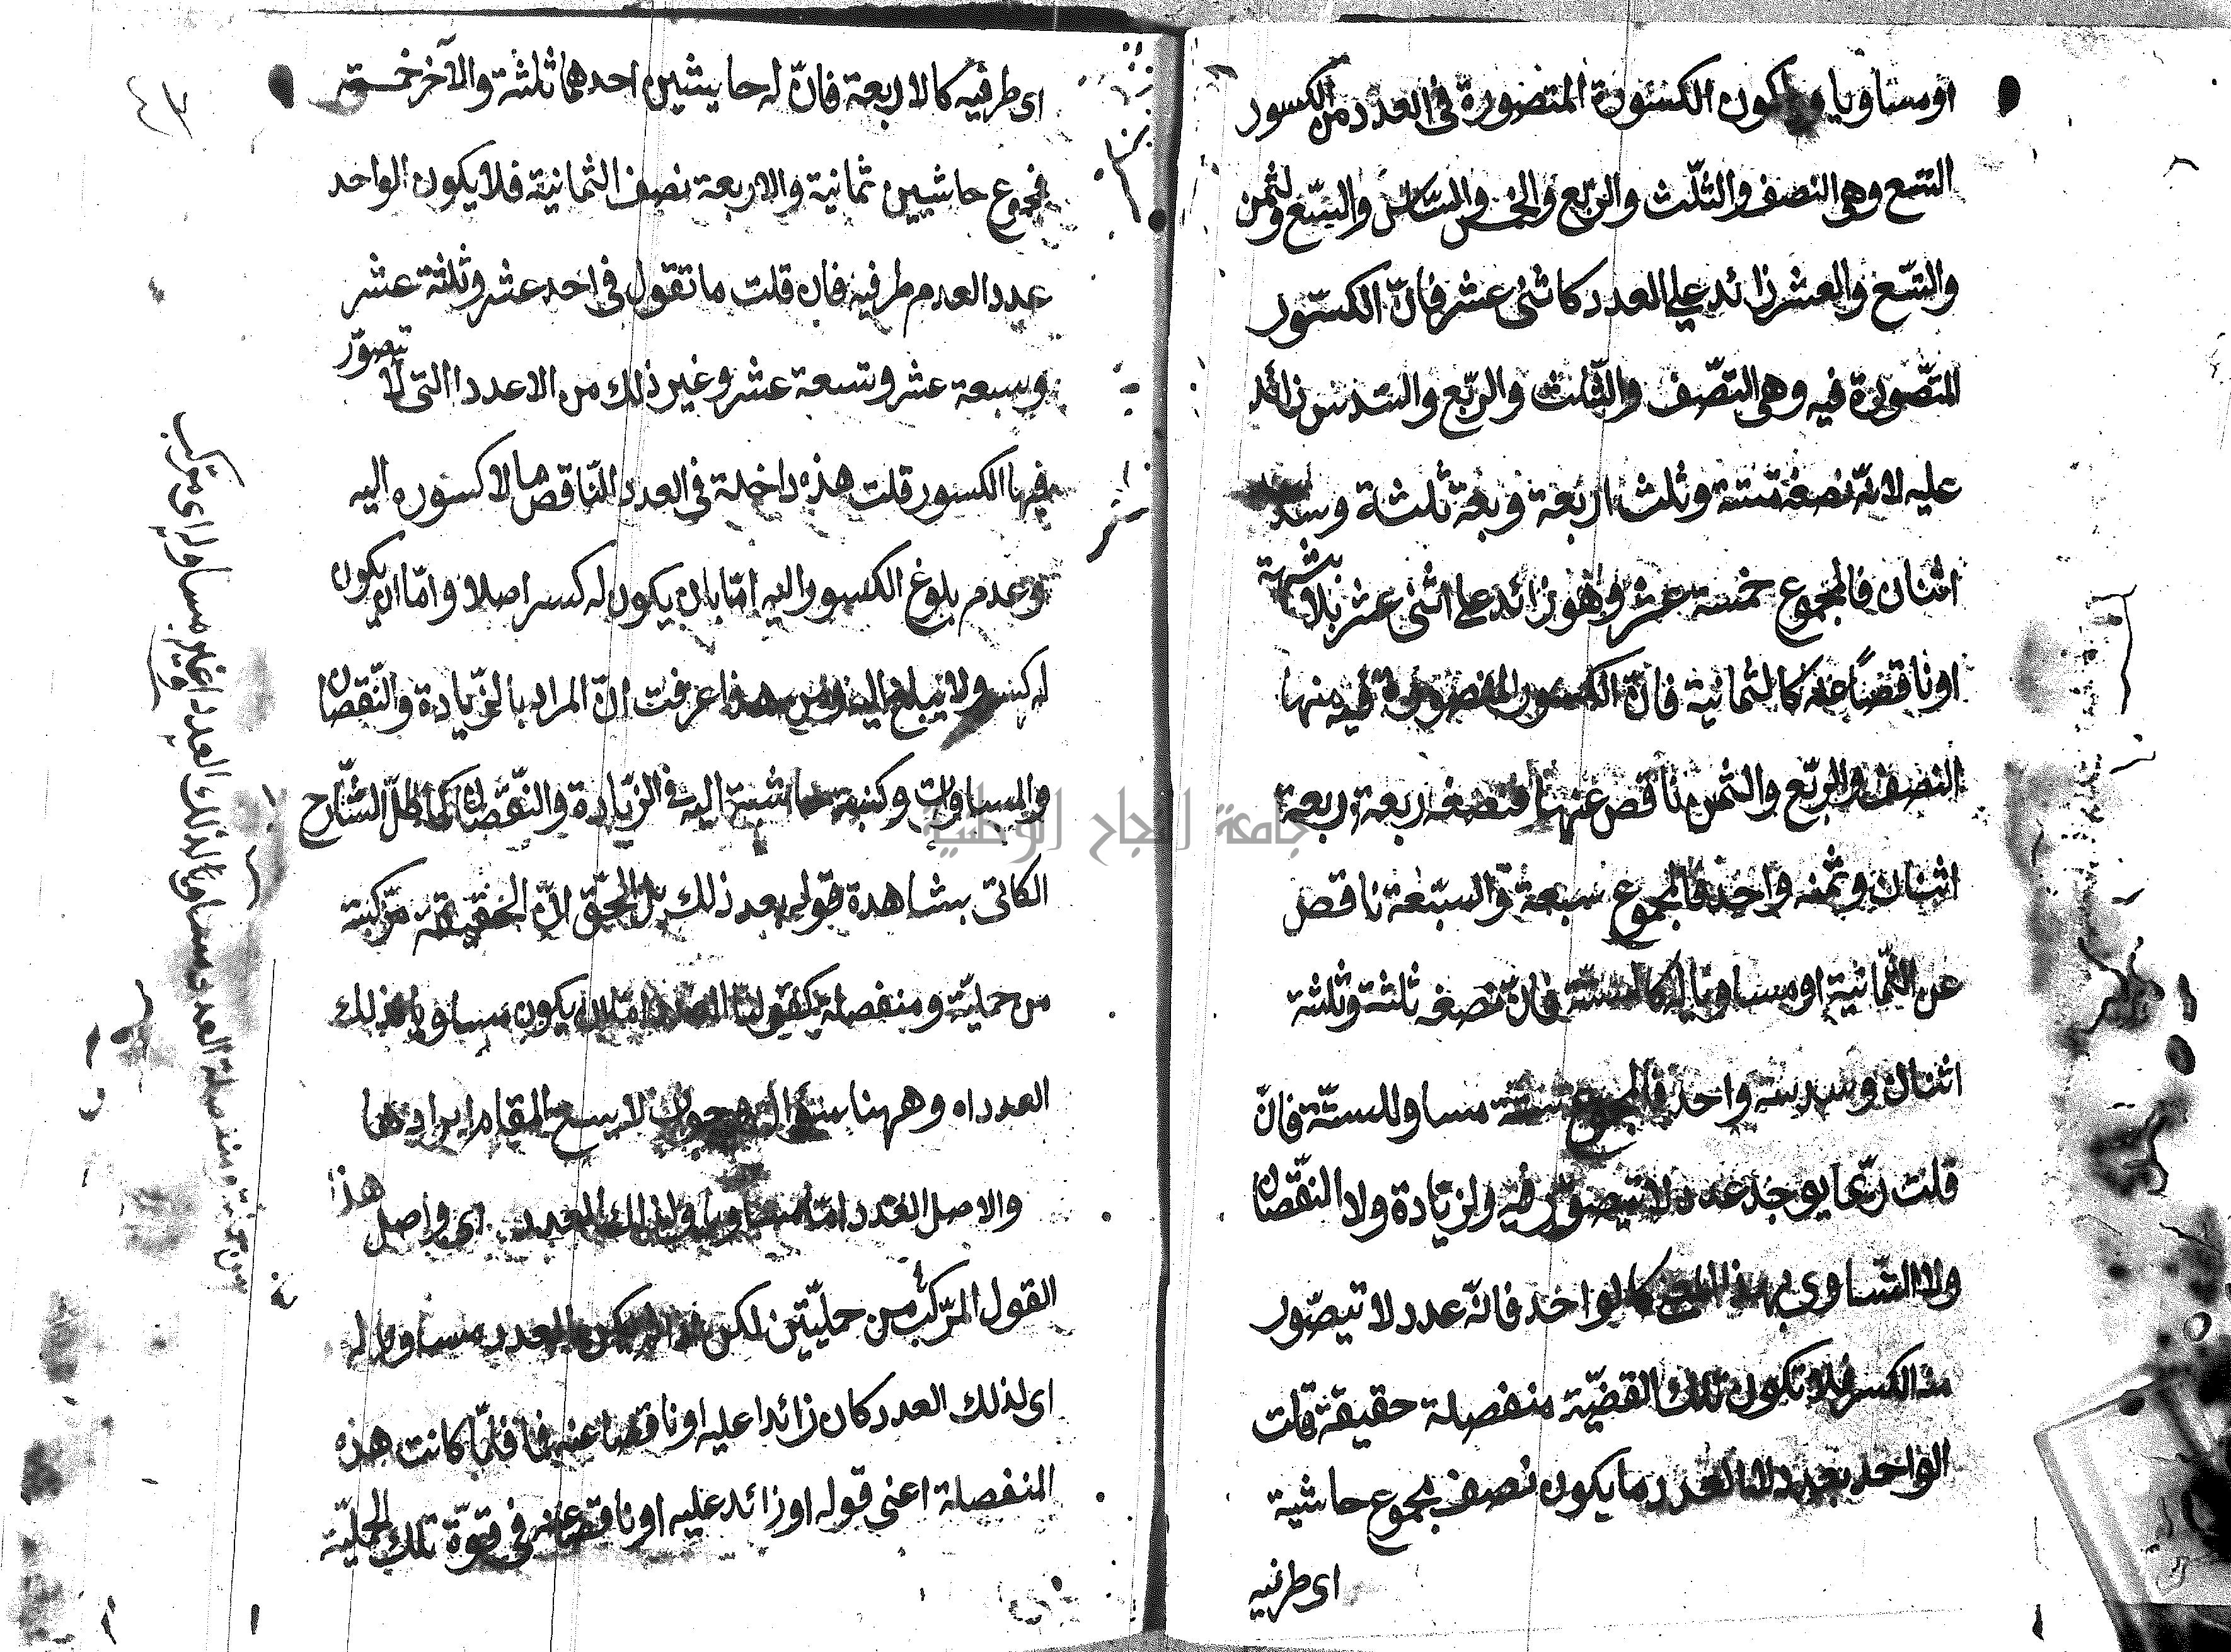 او مساويا ويكون الكسورة المتصورة فى العدد من الكسور
التسع وهى النصف والثلّث والربّع والخمس والسّدس والسّبع والثمن
والتسّع والعشر زائد على العدد كاثنى عشر فانّ الكسّور
المتصّورة فيه وهى النصّف والثّلث والربّع والسّدس زائد
عليه لانّه نصفه ستة وثلث اربعة وربعه ثلثة وسد
اثنان فالمجموع خمسة عشر وهو زائد على اثنى عشر بلا شبهة
او ناقصًا عنه كالثمانية فانّ الكسور المتصورة فيه منها
النصف والربّع والثمن ناقص عنها فنصفه اربعة وربعه
اثنان وثمنه واحد فالمجموع سبعة والسبّعة ناقص
عن الثّمانية او مساويا له كالستّة فانّ نصفه ثلثة وثلثه
اثنان وسدسه واحد فالمجموع ستة مساو للستّة فانّ
قلت ربّما يوجد عدد لا تتصوّر فيه ولزيادة ولا النقّصان
ولا التسّاوى بهذا المعنى كالواحد فانّه عدد لا تتصّور
منه الكسر فلا تكون تلك القضيّة منفصلة حقيقة قلت
الواحد بعدد لانّ العدد ما يكون نصف مجموع حاشية
اى طرفيه
اى طرفيه كالاربعة فانّ له حايشين احدهما ثلثة والآخر خمسة
فمجموع حاشيين ثمانية والاربعة نصف الثمانية فلا يكون الواحد
عدد العدم طرفيه فان قلت ما تقول فى احد عشر وثلثة عشر
وسبعة عشر وتسعة عشر وغير ذلك من الاعدد االتى لا تتصوّر
فيها الكسور قلت هذه داخلة فى العدد النّاقص ما لا كسوره اليه
وعدم بلوغ الكسور اليه امّا بان يكون له كسر اصلا وامّا ان يكون
له كسر ولا يبلغ اليه ومن هذا عرفت انّ المراد بالزّيادة والنّقصان
والمساوات وكنسبة حاشية اليه فى الزّيادة والنقّصان كما ظنّ الشّارح
الكاتى بشاهدة قوله بعد ذلك بل الحقّ انّ الحقيقة مركّبة
من حمليّة ومنفصلة كقولنا العدد امّا ان يكون مساويا لذلك
العدد اه وههنا سؤال وجواب لا يسع المقام ايرادهما
والاصل العدد امّا مساويا لذلك العدد اى واصل هذا
القول المركّب من حمليّتين لكن لما لم يكن العدد مساويا له
اى لذلك العدد كان زائدا عليه او ناقصا عنه فلمّا كانت هذه
المنفصلة اعنى قوله او زائد عليه او ناقصا عنه فى قوّة تلك الحمليّة
جامعة النجاح الوطنية